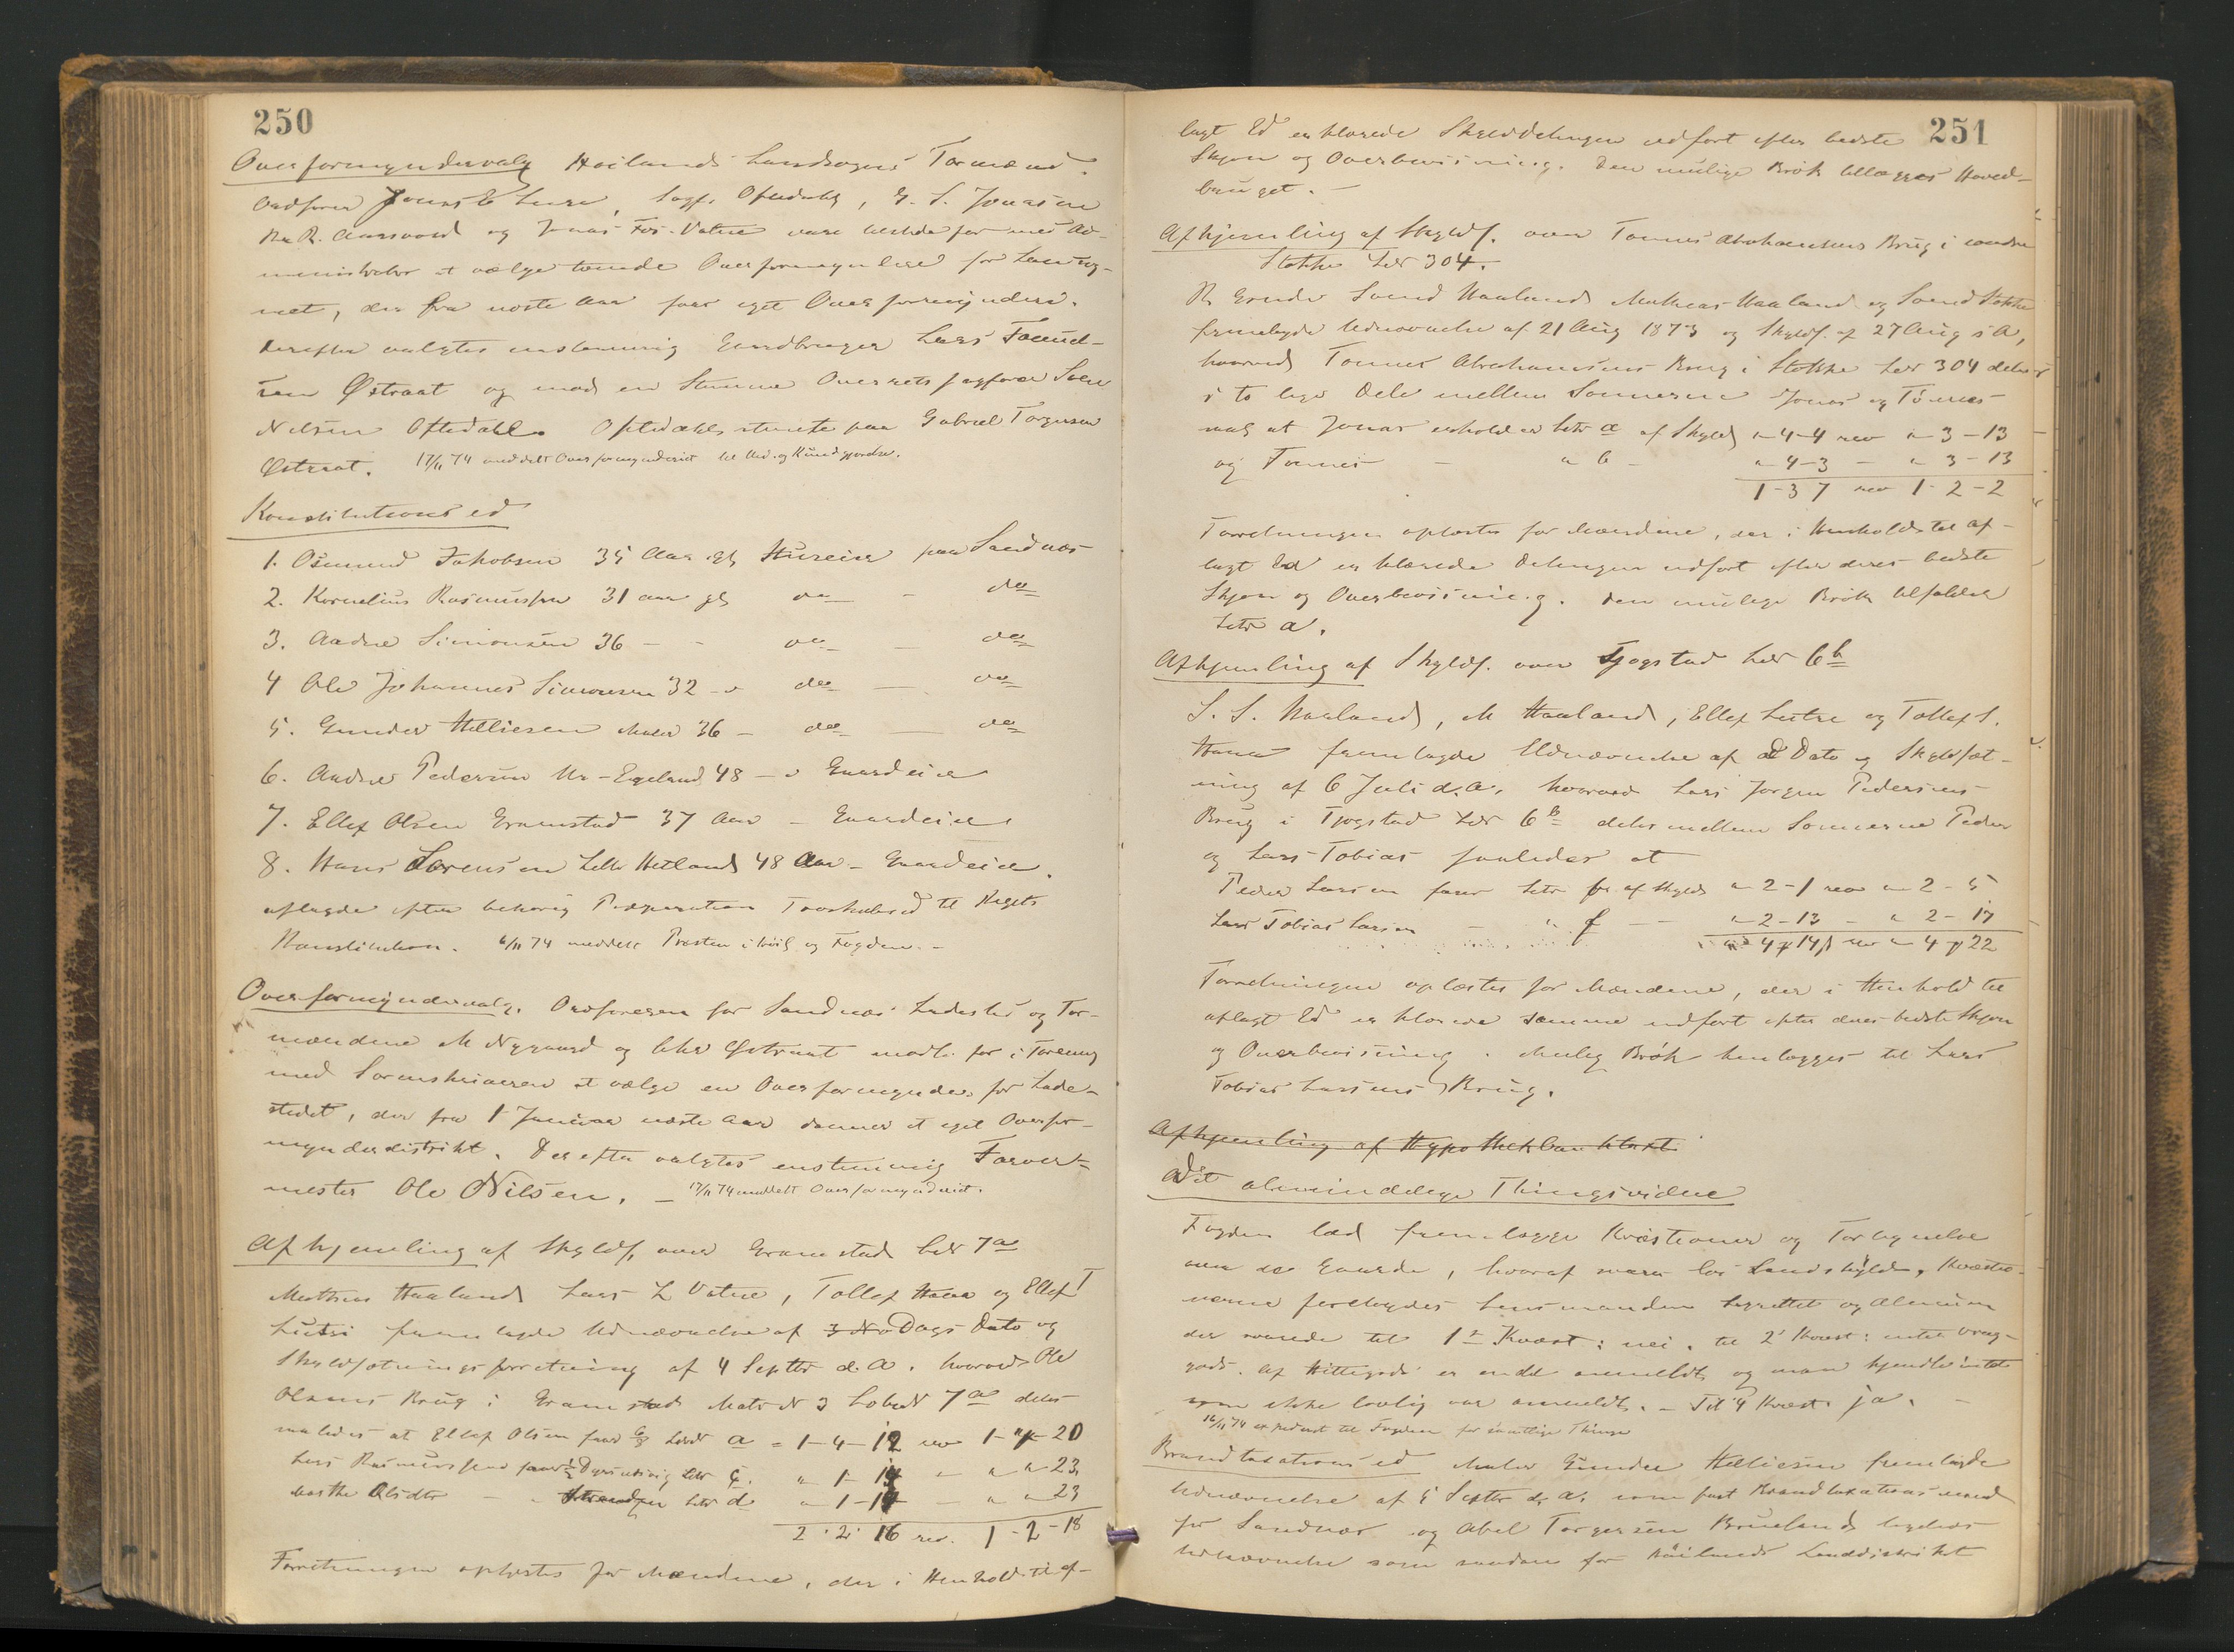 250
Overformyndervalg Høilands Landsogns Formænd.
Ordfører Jonas E Lura, Sagf. Oftedahl, G. S. Jonasen
R. Aarsvold og Jonas Tos. Vatne vare tilstede for med Ad-
ministrator at vælge tvende Overformyndere for Landsog-
net, der fra næste Aar faar eget Overformynderi.
Derefter valgtes enstemmig Gaardbruger Lars
Østraat og mod en Stemme Overretssagfører Sven
Nilsen Oftedahl. Oftedahl stemte paa Gabriel Torgersen
Østraat. 17/11 74 meddelt Overformynderiet til Und. og Kundgjørelse.
Konstitutionsed
1. Osmund Jakobsen 35 Aar gl Huseier paa Sandnæs
2. Kornelius Rasmussen 31 aar gl do - do
3. Aadne Simonsen 36 - - do - do
4 Ole Johannes Simonsen 32 - " do - do
5. Gunder Helliesen Maler 36 - do - do
6. Andreas Pedersen Ur-Egeland 48 - " Gaardeier
7. Ellef Olsen Gramstad 37 Aar - Gaardeier
8. Hans Sørensen Lille Hetland 48 Aar - Gaardeier.
aflagde efter behørig Præparation Troskabsed til Rigets
Konstitution. 6/11 74 meddelt Præsten i Høil og Fogden. -
Overformyndervalg. Ordføreren for Sandnæs Ladested og For-
mændene M Nygaard og Østraat mødte for i Forening
med Sorenskriveren at vælge en Overformynder for Lade-
stedet, der fra 1 Januar næste Aar danner et eget Overfor-
mynderdistrikt. Derefter valgtes enstemmig Farver-
mester Ole Nilsen. - 17/11 74 meddelt Overformynderiet.
Afhjemling af Skyldf. over Gramstad Lbr 7a
Mathias Haaland Lars L Vatne, Tollef Hana og Ellef T
Lutsi fremlagde Udnævnelse af 3 No Dags Dato og
Skyldsætningsforretning af 4 Septbr d. A. hvorved Ole
Olsens Brug i Gramstad Mats No 3 Løbe No 7a deles
saaledes at Ellef Olsen faar Løbe No a = 1-4-12 rev 1-"-20
Lars Rasmussen faar Lbr c. " 1-14 - " " 23
Marthe Olsdtr - - Lbr d " 1-14 - " " 23
2 . 2 . 16 rev. 1-2-18
Forretningen oplæstes for Mændene, der i Henhold til af-
251
lagt Ed erklærede Skylddelingen udført efter bedste
Skjøn og Overbevisning. Den mulige Brøk tillægges Hoved-
bruget. -
Afhjemling af Skyldf. over Tønnes Abrahamsens Brug i
Stokke Lbr 304.
R. Svend Haaland Mathias Haaland og Svend Stokke
fremlagde Udnævnelse af 21 Aug 1873 og Skyldf. af 27 Aug s A,
hvorved Tønnes Abrahamsens Brug i Stokke Lbr 304 deles
i to lige Dele mellem Sønnerne Jonas og Tønnes
saa at Jonas erholder Litr a af Skyld " 4-4 rev " 3-13
og Tønnes - " b - " 4-3 - " 3-13
1-3 7 rev 1-2-2
Forretningen oplæstes for Mændene, der i Henhold til af-
lagt Ed erklærede Delingen udført efter deres bedste
Skjøn og Overbevisning. Den mulige Brøk tilfalder
Litr a.
Afhjemling af Skyldf. over Tjøgstad Lbr 6b
S. S. Haaland, M Haaland, Ellef Lutse og Tollef S.
Hana fremlagde Udnævnelse af d Dato og Skyldsæt-
ning af 6 Juli d. A. hvorved Lars Jørgen Pedersens
Brug i Tjøgstad Lbr 6b deles mellem Sønnerne Peder
og Lars Tobias saaledes at
Peder Larsen faar Litr af Skyld " 2-1 rev " 2-5
Lars Tobias Larsen - " f - - " 2-13 - " 2-17
4 14 rev " 4 22
Forretningen oplæstes for Mændene, der i Henhold til
aflagt Ed erklærede samme udført efter deres bedste Skjøn
og Overbevisning. Mulig Brøk henlægges til Lars
Tobias Larsens Brug.
Afhjemling af Hypothekbanktaxt
Det almindelige Thingsvidne
Fogden lod fremlægge Kvæstioner og Fortegnelse
over de Gaarde, hvoraf svares løs Landskyld. Kvæstio-
nerne forelagdes Lensmanden Lagrettet og Almuen
der svarede til 1ste Kvæst: nei. til 2' Kvæst: intet Vrag-
gods. Af Hittegods er endel anmeldt, og man kjendte intet
som ikke lovlig var anmeldt. - Til 4 Kvæst. ja. -
16/11 74 expederet til Fogden for samtlige Thinge
Brandtaxationsed Maler Gunder Helliesen fremlagde
Udnævnelse af 5 Septbr d. A. som fast Brandtaxationsmand
for Sandnæs og Abel Torgersen Bruelands ligeledes
Udnævnelse som saadan for Høilands Landdistrikt